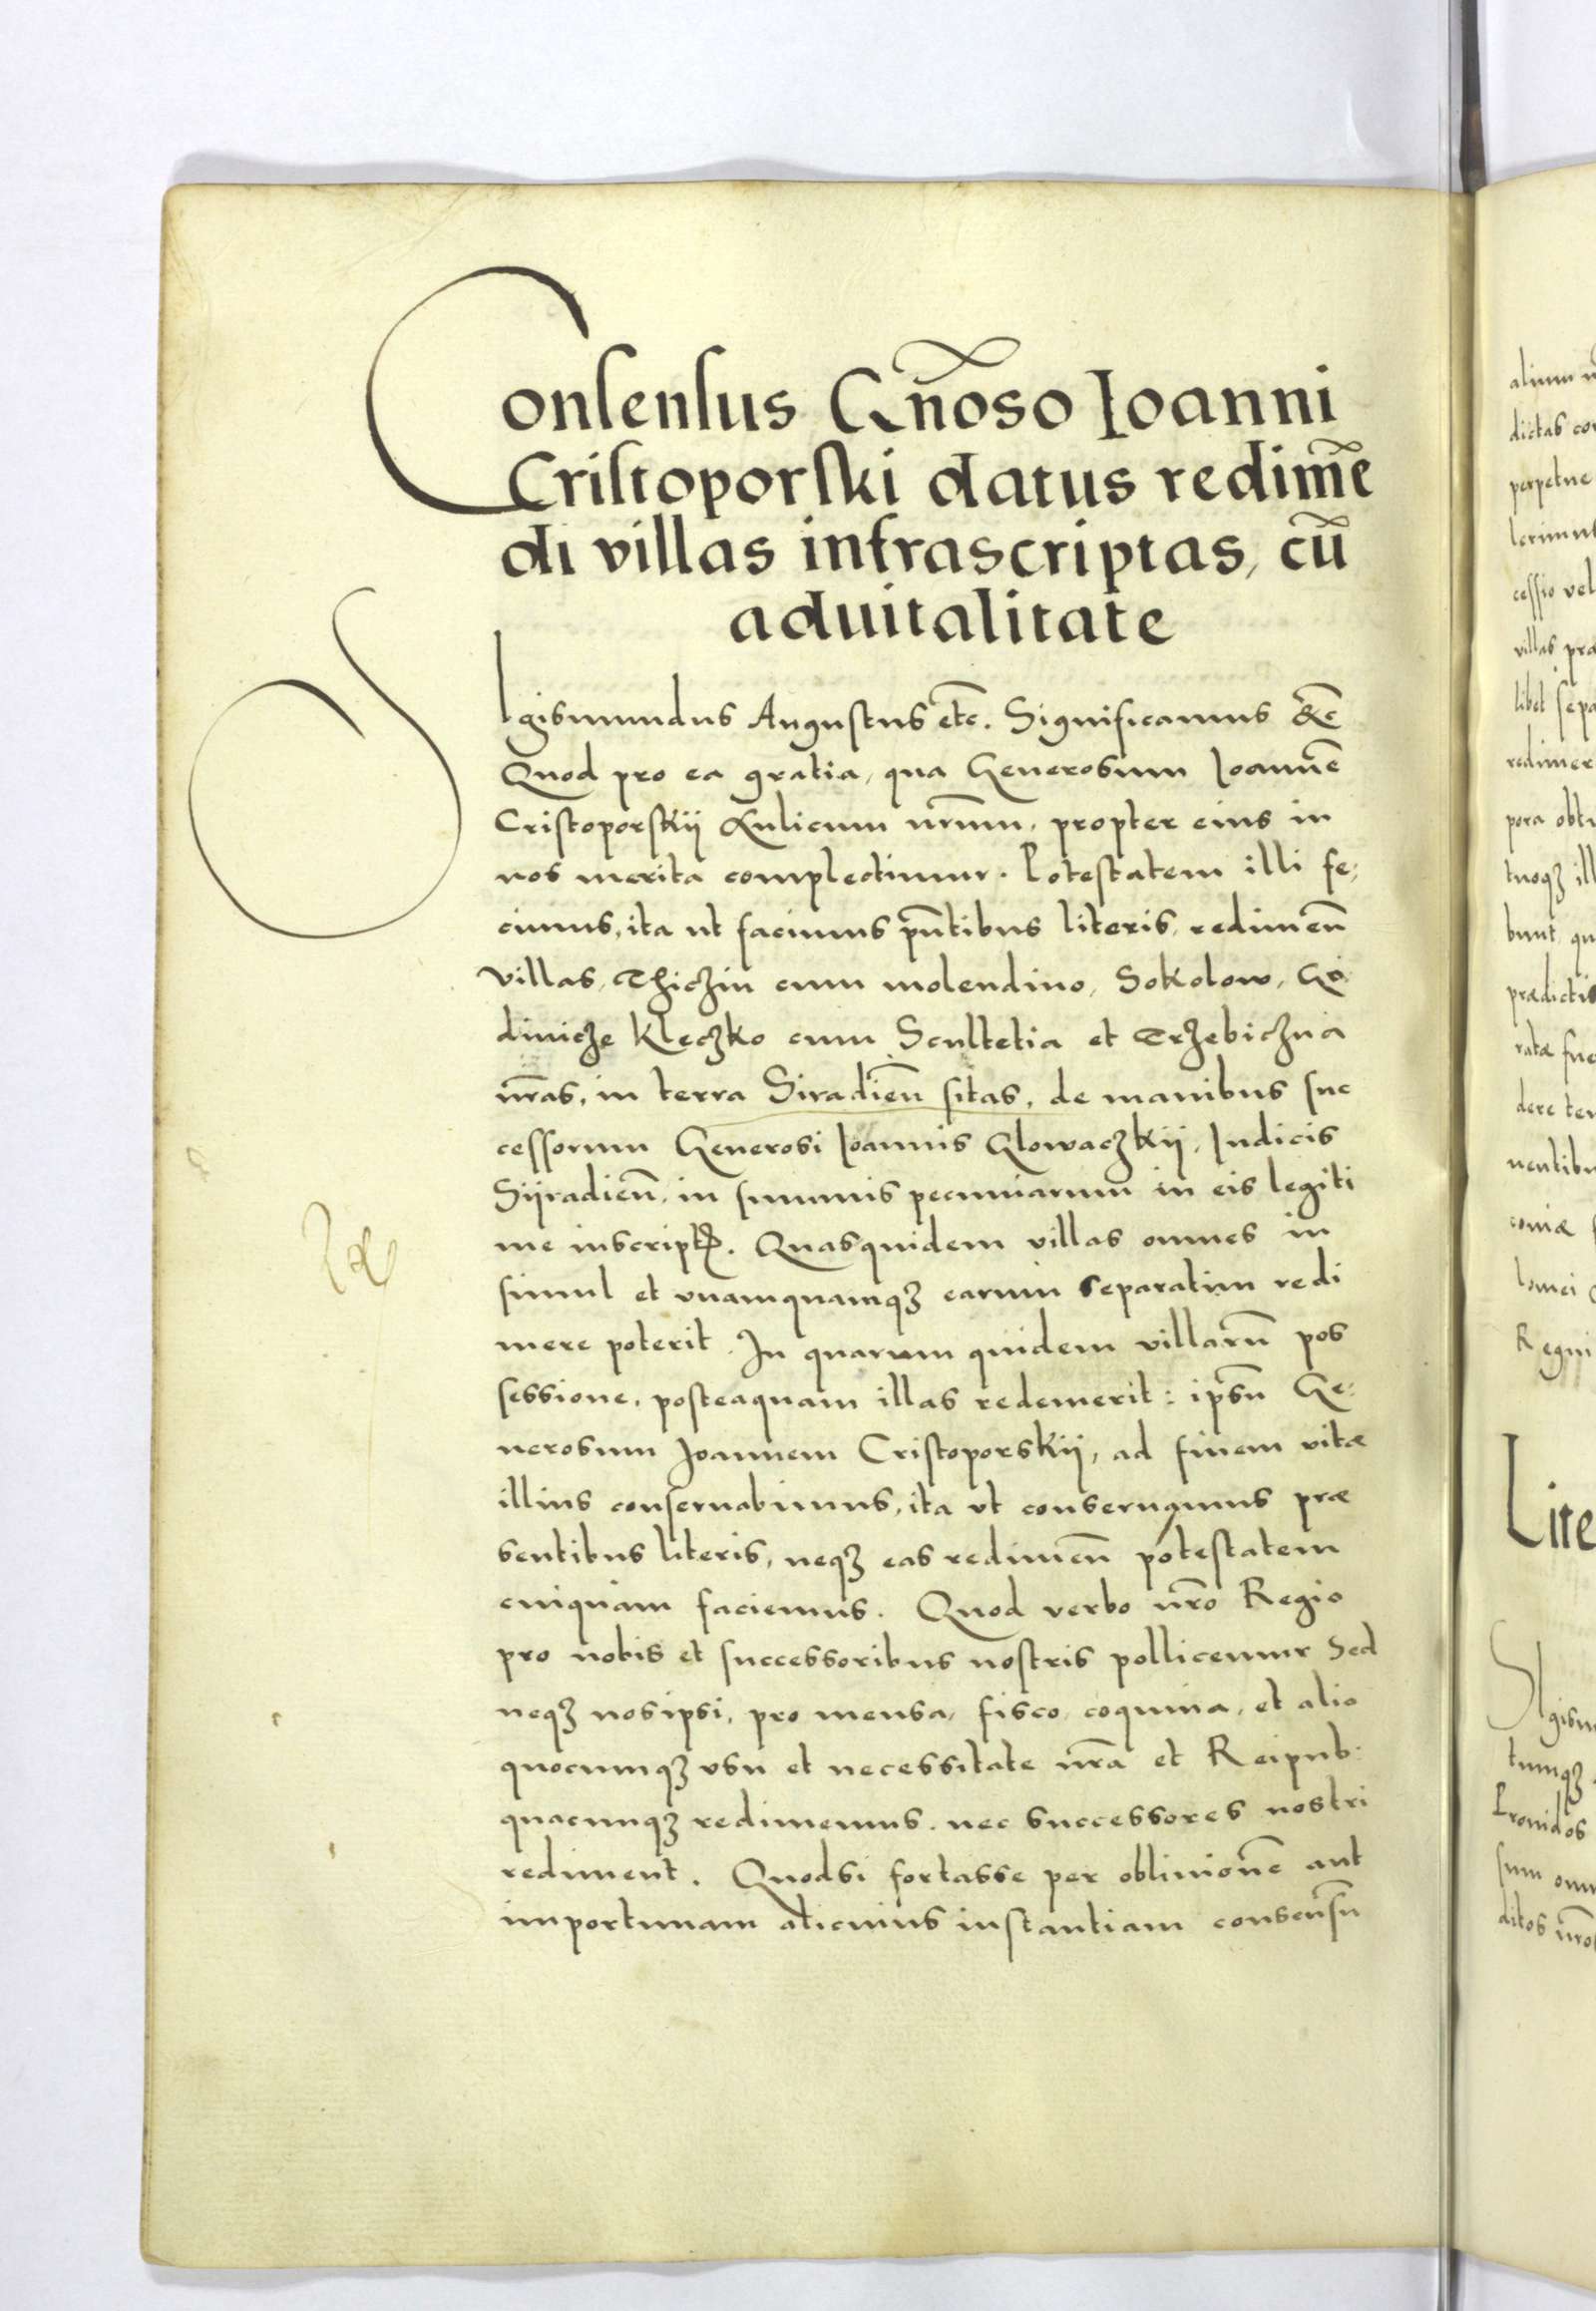 Consensus Gn̄oso Ioanni
Cristoporski datus redimē
di villas infrascriptas, cū
aduitalitate
Sigismundus Augustus etc̄. Significamus &c̄
Quod pro ea gratia, qua Generosum Ioannē
Cristoporskij Aulicum nr̄um, propter eius in
nos merita complectimur. Potestatem illi fe,
cimus, ita ut facimus pn̄tibus literis, redimen̄
villas, Thiczin cum molendino, Sokolow, Go
dinicze Kleczko cum Scultetia et Trzebiczna
nr̄as, in terra Siradien̄ sitas, de manibus suc
cessorum Generosi Ioannis Glowaczkij, Iudicis
Sijradien̄, in summis pecuniarum in eis legiti
me inscriptꝝ. Quasquidem villas omnes in
simul et vnamquamqꝫ earum separatim redi
mere poterit. In quarum quidem villarū pos
sessione, posteaquam illas redemerit: ipsū Ge:
nerosum Joannem Cristoporskij, ad finem vitæ
illius conseruabimus, ita vt conseruamus præ
sentibus literis, neqꝫ eas redimen̄ potestatem
cuiquam faciemus. Quod verbo nr̄o Regio
pro nobis et successoribus nostris pollicemur Sed
neqꝫ nosipsi, pro mensa, fisco, coquina, et alio
quocumqꝫ vsu et necessitate nr̄a et Reipub:
quacunqꝫ redimemus, nec successores nostri
rediment. Quodsi fortasse per obliuionē aut
importunam alicuius instantiam consensū
alium
dictas
perpetue
cessio vel
villas
libet
pora
bunt
prædictis
ratæ
dere
Regni
Lite
Prouidos
sum
ditos